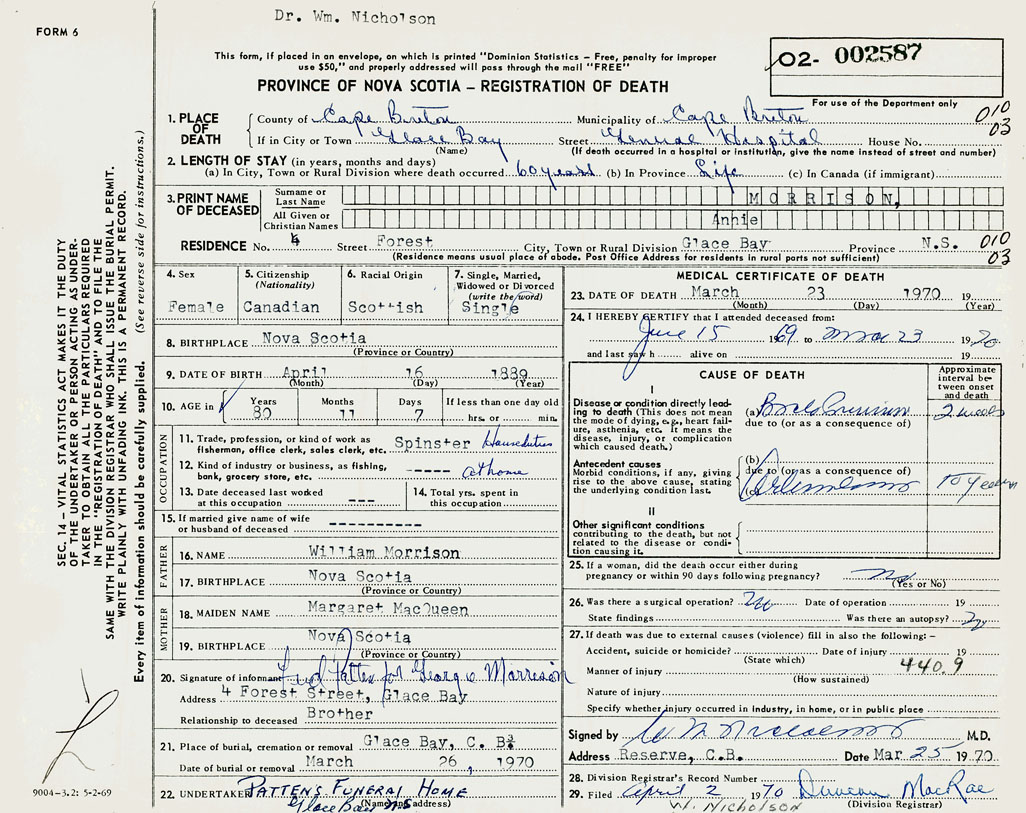 Dr. Wm. Nicholson
FORM 6
This form, if placed in an envelope, on which is printed "Dominion Statistics - Free, penalty for improper
use $50," and properly addressed will pass through the mail "FREE"
02- 002587
PROVINCE OF NOVA SCOTIA - REGISTRATION OF DEATH
For use of the Department only
1. PLACE OF DEATH County of Cape Breton Municipality of Cape Breton 010
If in City or Town Glace Bay Street General Hospital House No. 03
(Name) (If death occurred in a hospital or institution, give the name instead of street and number)
2. LENGTH OF STAY (in years, months and days)
(a) In City, Town or Rural Division where death occurred 60 years (b) In Province Life (c) In Canada (if immigrant)
3. PRINT NAME OF DECEASED Surname or Last Name MORRISON,
All Given or Christian Names Annie
RESIDENCE No. 4 Street Forest City, Town or Rural Division Glace Bay Province N.S. 010
(Residence means usual place of abode. Post Office Address for residents in rural ports not sufficient) 03
4. Sex Female
5. Citizenship (Nationality) Canadian
6. Racial Origin Scottish
7. Single, Married, Widowed or Divorced (write the word) Single
8. BIRTHPLACE Nova Scotia
(Province or Country)
9. DATE OF BIRTH April 16 1889
(Month) (Day) (Year)
10. AGE in Years 80 Months 11 Days 7 If less than one day old hrs. or min.
OCCUPATION
11. Trade, profession, or kind of work as fisherman, office clerk, sales clerk, etc. Spinster Houseduties
12. Kind of industry or business, as fishing, bank, grocery store, etc. ----- at home
13. Date deceased last worked at this occupation ---
14. Total yrs. spent in this occupation
15. If married give name of wife or husband of deceased ----------
FATHER
16. NAME William Morrison
17. BIRTHPLACE Nova Scotia
(Province or Country)
MOTHER
18. MAIDEN NAME Margaret MacQueen
19. BIRTHPLACE Nova Scotia
(Province or Country)
20. Signature of informant Patten for George Morrison
Address 4 Forest Street, Glace Bay
Relationship to deceased Brother
21. Place of burial, cremation or removal Glace Bay, C. B.
Date of burial or removal March 26, 1970
22. UNDERTAKER PATTENS FUNERAL HOME
Glace Bay NS
(Name and address)
MEDICAL CERTIFICATE OF DEATH
23. DATE OF DEATH March 23 1970 19
(Month) (Day) (Year)
24. I HEREBY CERTIFY that I attended deceased from:
June 15 1969 to Mar 23 1970
and last saw h alive on 19
CAUSE OF DEATH
Approximate interval between onset and death
I
Disease or condition directly leading to death (This does not mean the mode of dying, e.g., heart failure, asthenia, etc. It means the disease, injury, or complication which caused death.)
(a) 2 weeks
due to (or as a consequence of)
Antecedent causes
Morbid conditions, if any, giving rise to the above cause, stating the underlying condition last.
(b)
due to (or as a consequence of)
(c) 10 years
II
Other significant conditions contributing to the death, but not related to the disease or condition causing it.
25. If a woman, did the death occur either during pregnancy or within 90 days following pregnancy? no
(Yes or No)
26. Was there a surgical operation? no Date of operation 19
State findings Was there an autopsy? no
27. If death was due to external causes (violence) fill in also the following: -
Accident, suicide or homicide? Date of injury 19
(State which)
Manner of injury 440.9
(How sustained)
Nature of injury
Specify whether injury occurred in industry, in home, or in public place
Signed by W M Nicholson M.D.
Address Reserve, C.B. Date Mar 25 1970
28. Division Registrar's Record Number
29. Filed April 2 1970 Duncan MacRae
(Division Registrar)
W. Nicholson
SEC. 14 - VITAL STATISTICS ACT MAKES IT THE DUTY
OF THE UNDERTAKER OR PERSON ACTING AS UNDER-
TAKER TO OBTAIN ALL THE PARTICULARS REQUIRED
IN THE "REGISTRATION OF DEATH" AND TO FILE THE
SAME WITH THE DIVISION REGISTRAR WHO SHALL ISSUE THE BURIAL PERMIT.
WRITE PLAINLY WITH UNFADING INK. THIS IS A PERMANENT RECORD.
Every item of information should be carefully supplied. (See reverse side for instructions.)
9004-3.2: 5-2-69